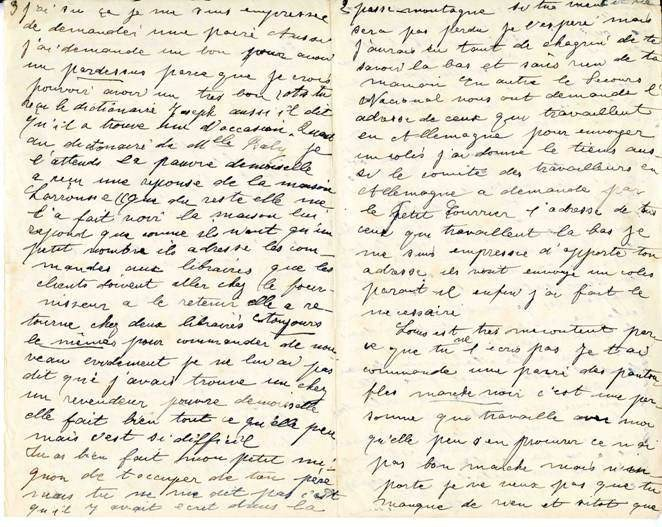 3 j'ai su ça je me suis empressé
de demander une paire chausse
j'ai demandé un bon pour avoir
un pardessus parce que je crois
pouvoir avoir un tres bon
reçu le dictionnaire Joseph aussi il dit
qu'il a trouvé d'occasion
au dictionaire de Melle je
l'attends la pauvre demoiselle
a reçu une reponse de la maison
Larrousse (que du reste elle me
l'a fait voir) la maison lui
repond que comme ils n'ont qu'un
petit nombre ils adresse les com-
mandes aux libraires que les
clients doivent aller chez le four-
nisseur a le retenir elle a re-
tourne chez deux libraires toujours
le mêmes pour commander de nou
veau evidement je ne lui ai pas
dit que j'avais trouve un chez
un revendeur pauvre demoiselle
elle fait bien tout ce qu'elle peu
mais c'est si difficil
Tu as bien fait mon petit mi-
gnon de t'occuper de ton pere
mais tu ne me dit pas
qu'il y avait ecrit dans la
passe-montagne
sera pas perdu je l'espère mais
j'aurais eu tant de chagrin de te
savoir la bas et sans rien de ta
maman En autre le Secours
National nous ont demande l'
adresse de ceux que travaillent
en Allemagne pour envoyer
un colis j'ai donne la tiens aus
si le comité des travailleurs en
Allemagne a demande par
le Petit Courrier l'adresse de tous
ceux que travaillent la bas je
me suis empresse d'apporte ton
adresse ils vont envoye un colis
parait il enfin j'ai fait le
necessaire
Louis est tres mecontent par
ce que tu ne l'ecris pas Je t'ai
commande une paire des pantou
fles marche noir c'est une per
sonne que travaille avec moi
qu'elle peu s'en procurer ce n'ai
pas bon marche mais n'im
porte je ne veux pas que tu
manque de rien et sitot que